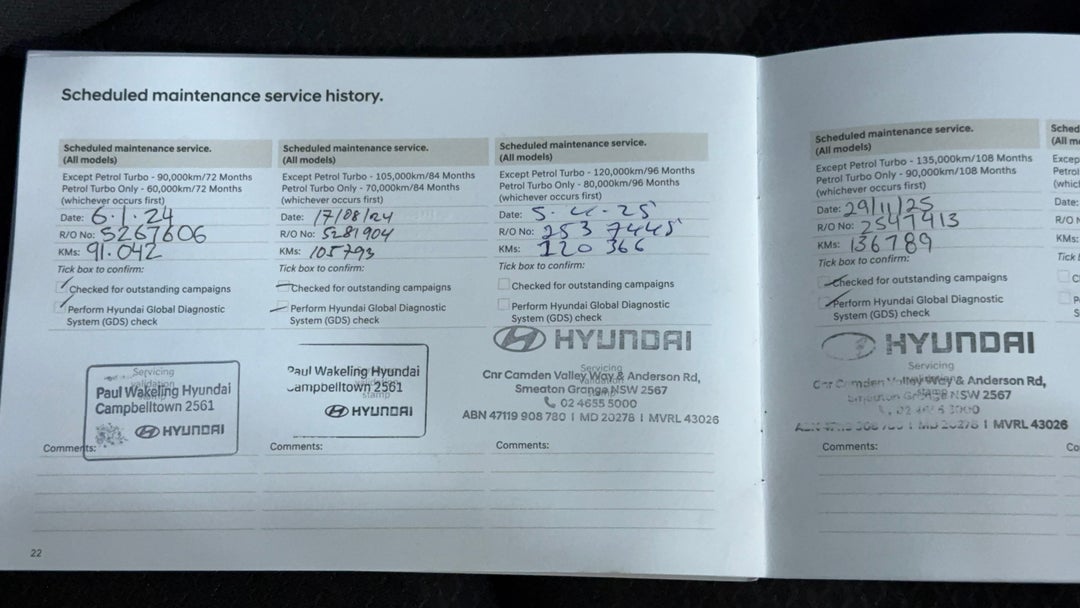 Scheduled maintenance service history.
Scheduled maintenance service.
(All models)
Except Petrol Turbo - 90,000km/72 Months
Petrol Turbo Only - 60,000km/72 Months
(whichever occurs first)
Date: 6.1.24
R/O No: 5267606
KMs: 91.042
Tick box to confirm:
Checked for outstanding campaigns
Perform Hyundai Global Diagnostic
System (GDS) check
Servicing
validation
Paul Wakeling Hyundai
Campbelltown 2561
HYUNDAI
Comments:
Scheduled maintenance service.
(All models)
Except Petrol Turbo - 105,000km/84 Months
Petrol Turbo Only - 70,000km/84 Months
(whichever occurs first)
Date: 17/08/24
R/O No: 5281904
KMs: 105793
Tick box to confirm:
Checked for outstanding campaigns
Perform Hyundai Global Diagnostic
System (GDS) check
Servicing
validation
stamp
Paul Wakeling Hyundai
Campbelltown 2561
HYUNDAI
Comments:
Scheduled maintenance service.
(All models)
Except Petrol Turbo - 120,000km/96 Months
Petrol Turbo Only - 80,000km/96 Months
(whichever occurs first)
Date: 5. 25
R/O No: 253 7445
KMs: 120 366
Tick box to confirm:
Checked for outstanding campaigns
Perform Hyundai Global Diagnostic
System (GDS) check
HYUNDAI
Servicing
validation
stamp
Cnr Camden Valley Way & Anderson Rd,
Smeaton Grange NSW 2567
02 4655 5000
ABN 47119 908 780 | MD 20278 | MVRL 43026
Comments:
22
Scheduled maintenance service.
(All models)
Except Petrol Turbo - 135,000km/108 Months
Petrol Turbo Only - 90,000km/108 Months
(whichever occurs first)
Date: 29/11/25
R/O No: 2547413
KMs: 136789
Tick box to confirm:
Checked for outstanding campaigns
Perform Hyundai Global Diagnostic
System (GDS) check
HYUNDAI
Servicing
validation
stamp
Cnr Camden Valley Way & Anderson Rd,
Smeaton Grange NSW 2567
02 4655 5000
ABN 47119 908 780 | MD 20278 | MVRL 43026
Comments:
Sched
(All m
Excep
Petrol
(which
Date:
R/O
KMs:
Tick b
C
P
S
Co